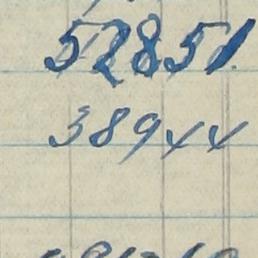 52851
38944